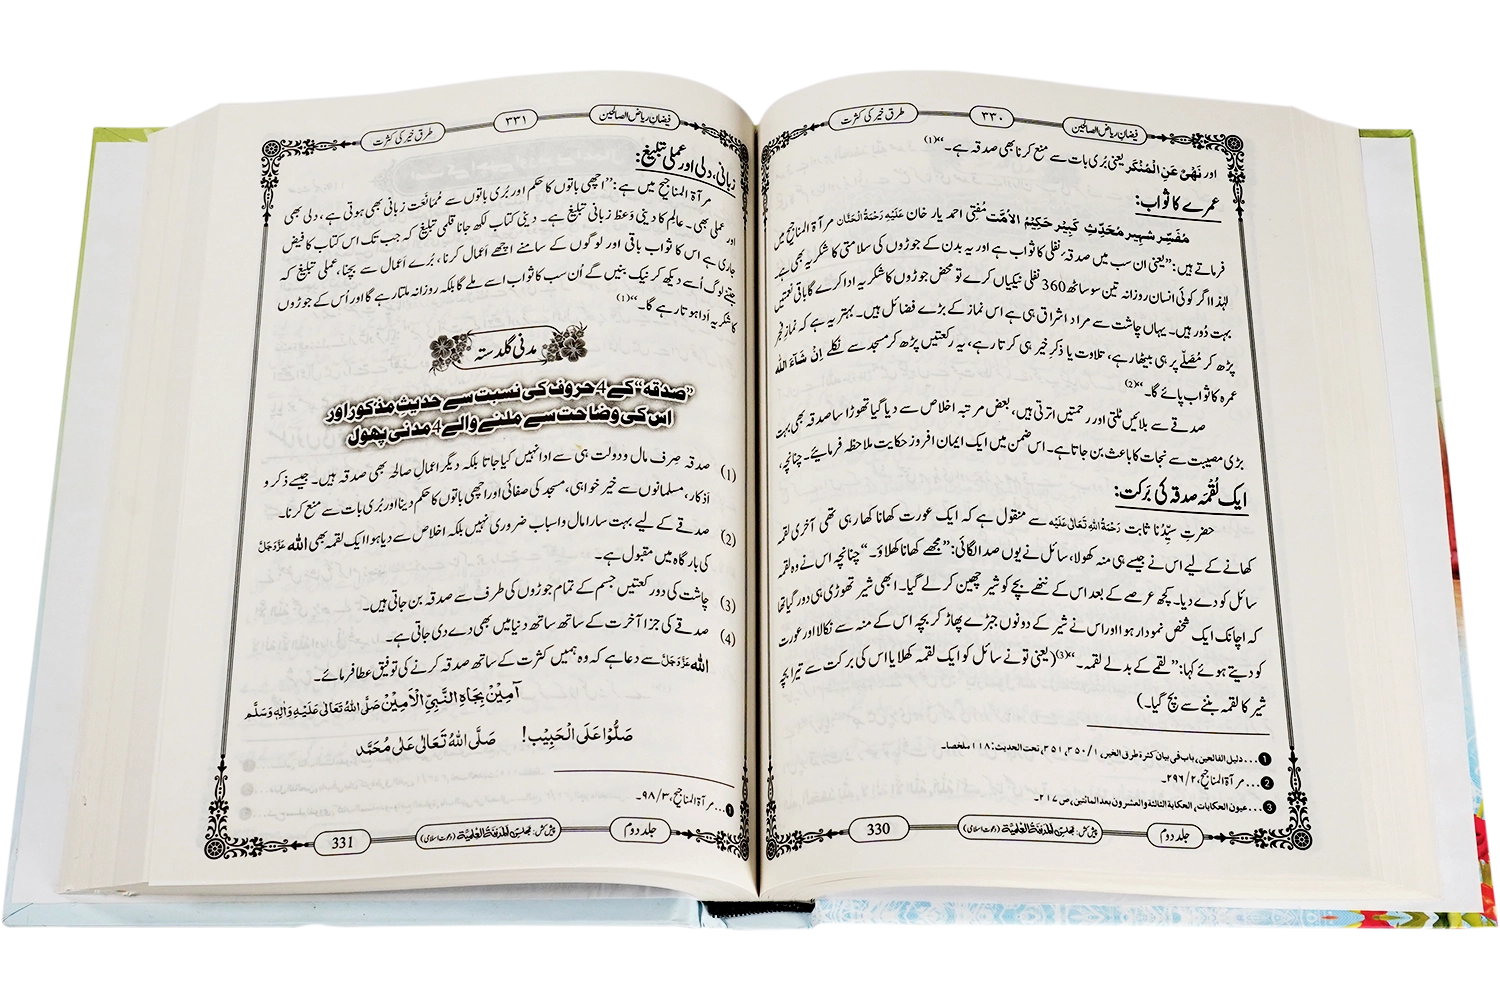 فیضانِ ریاض الصالحین
٣٣٠
طرق خیر کی کثرت
اور نَهْیٌ عَنِ الْمُنْكَر یعنی بُری بات سے منع کرنا بھی صدقہ ہے۔“(1)
عمرے کا ثواب:
مُفَسِّر شہیر مُحَدِّثِ کَبِیْر حَکِیْمُ الْاُمَّت مُفتی احمد یار خان عَلَیْہِ رَحْمَۃُ الْحَنَّان مرآۃ المناجیح میں
فرماتے ہیں: ”یعنی ان سب میں صدقۂ نفلی کا ثواب ہے اور یہ بدن کے جوڑوں کی سلامتی کا شکریہ بھی ہے۔
لہٰذا اگر کوئی انسان روزانہ تین سو ساٹھ 360 نفلی نیکیاں کرے تو محض جوڑوں کا شکریہ ادا کرے گا باقی نعمتیں
بہت دُور ہیں۔ یہاں چاشت سے مراد اشراق ہی ہے اس نماز کے بڑے فضائل ہیں۔ بہتر یہ ہے کہ نمازِ فجر
پڑھ کر مُصَلّے پر ہی بیٹھا رہے، تلاوت یا ذکرِ خیر ہی کرتا رہے، یہ رکعتیں پڑھ کر مسجد سے نکلے اِنْ شَآءَ اللہ
عمرہ کا ثواب پائے گا۔“(2)
صدقے سے بلائیں ٹلتی اور رحمتیں اترتی ہیں، بعض مرتبہ اخلاص سے دیا گیا تھوڑا سا صدقہ بھی بہت
بڑی مصیبت سے نجات کا باعث بن جاتا ہے۔ اس ضمن میں ایک ایمان افروز حکایت ملاحظہ فرمائیے۔ چنانچہ،
ایک لُقْمَہ صدقہ کی بَرَکت:
حضرتِ سیِّدُنا ثابت رَحْمَۃُ اللہِ تَعَالٰی عَلَیْہ سے منقول ہے کہ ایک عورت کھانا کھا رہی تھی آخری لقمہ
کھانے کے لیے اس نے جیسے ہی منہ کھولا، سائل نے یوں صدا لگائی: ”مجھے کھانا کھلاؤ۔“ چنانچہ اس نے وہ لقمہ
سائل کو دے دیا۔ کچھ عرصے کے بعد اس کے ننھے بچے کو شیر چھین کر لے گیا۔ ابھی شیر تھوڑی ہی دور گیا تھا
کہ اچانک ایک شخص نمودار ہوا اور اس نے شیر کے دونوں جبڑے پھاڑ کر بچہ اس کے منہ سے نکالا اور عورت
کو دیتے ہوئے کہا: ”لقمے کے بدلے لقمہ۔“(3) (یعنی تو نے سائل کو ایک لقمہ کھلایا اس کی برکت سے تیرا بچہ
شیر کا لقمہ بننے سے بچ گیا۔)
1 ...دلیل الفالحین، باب فی بیان کثرۃ طرق الخیر، ١/٣٥٠، ٣٥١، تحت الحدیث: ١١٨ ملخصا۔
2 ...مرآۃ المناجیح، ٢/٢٩٦۔
3 ...عیون الحکایات، الحکایۃ الثالثۃ والعشرون بعد المائتین، ص٢١٧۔
جلد دوم
پیش کش: مجلس المدینۃ العلمیۃ (دعوتِ اسلامی)
330
فیضانِ ریاض الصالحین
٣٣١
طرق خیر کی کثرت
زبانی، دلی اور عملی تبلیغ:
مرآۃ المناجیح میں ہے: ”اچھی باتوں کا حکم اور بُری باتوں سے مُمانَعت زبانی بھی ہوتی ہے، دلی بھی
اور عملی بھی۔ عالِم کا دینی وَعظ زبانی تبلیغ ہے۔ دینی کتاب لکھ جانا قلمی تبلیغ کہ جب تک اس کتاب کا فیض
جاری ہے اس کا ثواب باقی اور لوگوں کے سامنے اچھے اَعمال کرنا، بُرے اَعمال سے بچنا، عملی تبلیغ کہ
جتنے لوگ اُسے دیکھ کر نیک بنیں گے اُن سب کا ثواب اسے ملے گا بلکہ روزانہ ملتا رہے گا اور اُس کے جوڑوں
کا شکریہ اَدا ہوتا رہے گا۔“(1)
مدنی گلدستہ
”صدقہ“ کے 4 حروف کی نسبت سے حدیثِ مذکور اور
اس کی وضاحت سے ملنے والے 4 مدنی پھول
(1) صدقہ صِرف مال و دولت ہی سے ادا نہیں کیا جاتا بلکہ دیگر اعمالِ صالحہ بھی صدقہ ہیں۔ جیسے ذکر و
اَذکار، مسلمانوں سے خیر خواہی، مسجد کی صفائی اور اچھی باتوں کا حکم دینا اور بُری بات سے منع کرنا۔
(2) صدقے کے لیے بہت سارا مال و اسباب ضروری نہیں بلکہ اخلاص سے دیا ہوا ایک لقمہ بھی اللہ عَزَّوَجَلَّ
کی بارگاہ میں مقبول ہے۔
(3) چاشت کی دو رکعتیں جسم کے تمام جوڑوں کی طرف سے صدقہ بن جاتی ہیں۔
(4) صدقے کی جزا آخرت کے ساتھ ساتھ دنیا میں بھی دے دی جاتی ہے۔
اللہ عَزَّوَجَلَّ سے دعا ہے کہ وہ ہمیں کثرت کے ساتھ صدقہ کرنے کی توفیق عطا فرمائے۔
آمِیْنْ بِجَاہِ النَّبِیِّ الْاَمِیْنْ صَلَّی اللہُ تَعَالٰی عَلَیْہِ وَاٰلِہٖ وَسَلَّم
صَلُّوْا عَلَی الْحَبِیْب! صَلَّی اللہُ تَعَالٰی عَلٰی مُحَمَّد
1 ...مرآۃ المناجیح، ٣/٩٨۔
جلد دوم
پیش کش: مجلس المدینۃ العلمیۃ (دعوتِ اسلامی)
331